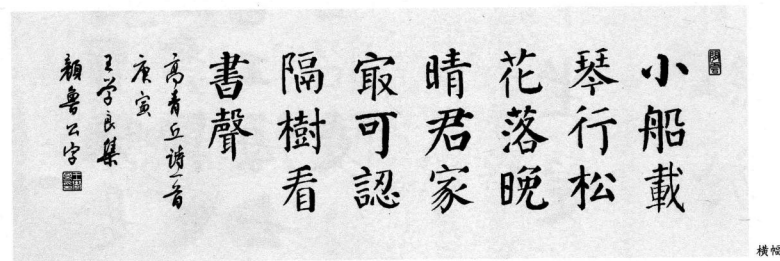 小船載
琴行松
花落晚
晴君家
㝡可認
隔樹看
書聲
高青丘詩一首
庚寅
王学良集
顏魯公字
横幅